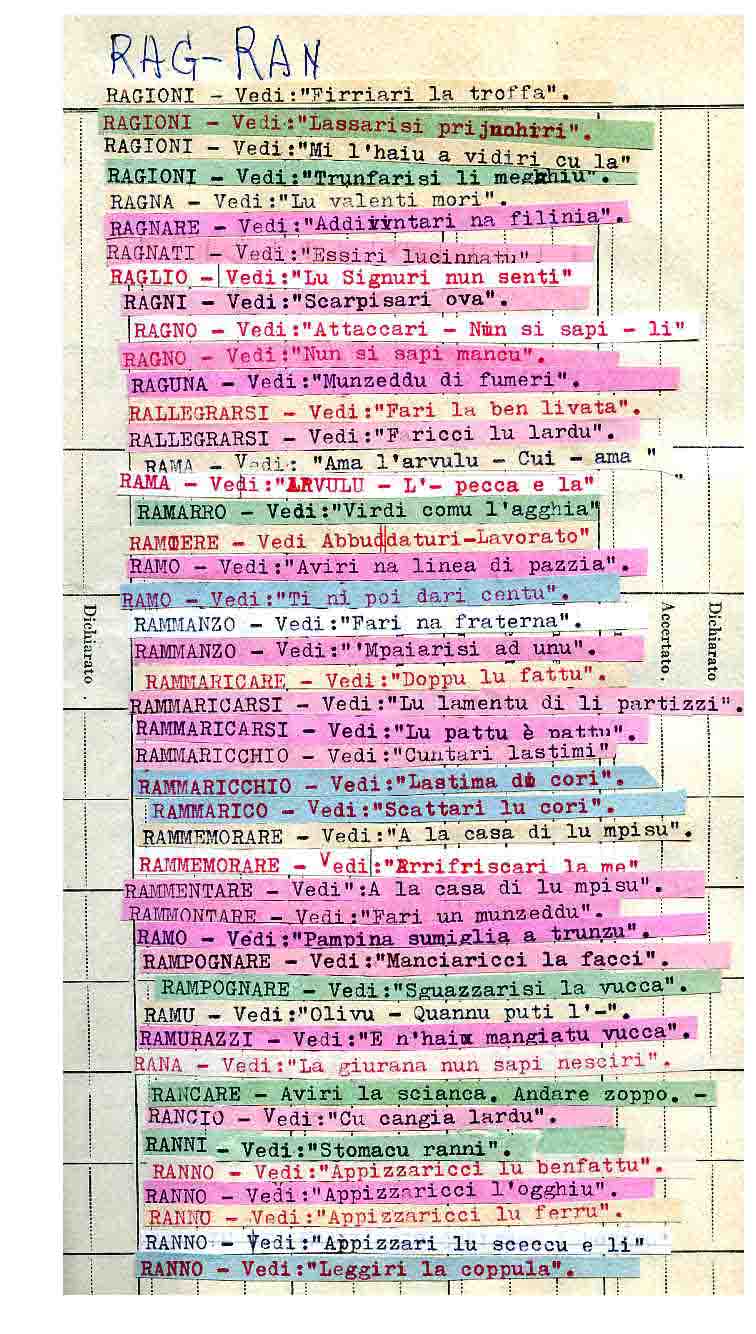 RAG-RAN
RAGIONI - Vedi:"Firriari la troffa".
RAGIONI - Vedi:"Lassarisi prijunhiri".
RAGIONI - Vedi:"Mi l'haiu a vidiri cu la"
RAGIONI - Vedi:"Trunfarisi li megghiu".
RAGNA - Vedi:"Lu valenti mori".
RAGNARE - Vedi:"Addivintari na filinia".
RAGNATI - Vedi:"Essiri lucinnatu".
RAGLIO - Vedi:"Lu Signuri nun senti"
RAGNI - Vedi:"Scarpisari ova".
RAGNO - Vedi:"Attaccari - Nun si sapi - li"
RAGNO - Vedi:"Nun si sapi mancu".
RAGUNA - Vedi:"Munzeddu di fumeri".
RALLEGRARSI - Vedi:"Fari la ben livata".
RALLEGRARSI - Vedi:"Faricci lu lardu".
RAMA - Vedi: "Ama l'arvulu - Cui - ama "
RAMA - Vedi:"ARVULU - L'- pecca e la" "
RAMARRO - Vedi:"Virdi comu l'agghia"
RAMIERE - Vedi Abbuddaturi-Lavorato"
RAMO - Vedi:"Aviri na linea di pazzia".
RAMO - Vedi:"Ti ni poi dari centu".
Dichiarato.
Accertato.
Dichiarato
RAMMANZO - Vedi:"Fari na fraterna".
RAMMANZO - Vedi:"'Mpaiarisi ad unu".
RAMMARICARE - Vedi:"Doppu lu fattu".
RAMMARICARSI - Vedi:"Lu lamentu di li partizzi".
RAMMARICARSI - Vedi:"Lu pattu è pattu".
RAMMARICCHIO - Vedi:"Cuntari lastimi"
RAMMARICCHIO - Vedi:"Lastima di cori".
RAMMARICO - Vedi:"Scattari lu cori".
RAMMEMORARE - Vedi:"A la casa di lu mpisu".
RAMMEMORARE - Vedi:"Arrifriscari la me"
RAMMENTARE - Vedi":A la casa di lu mpisu".
RAMMONTARE - Vedi:"Fari un munzeddu".
RAMO - Vedi:"Pampina sumiglia a trunzu".
RAMPOGNARE - Vedi:"Manciaricci la facci".
RAMPOGNARE - Vedi:"Sguazzarisi la vucca".
RAMU - Vedi:"Olivu - Quannu puti l'-".
RAMURAZZI - Vedi:"E n'haiu mangiatu vucca".
RANA - Vedi:"La giurana nun sapi nesciri".
RANCARE - Aviri la scianca. Andare zoppo. -
RANCIO - Vedi:"Cu cangia lardu".
RANNI - Vedi:"Stomacu ranni".
RANNO - Vedi:"Appizzaricci lu benfattu".
RANNO - Vedi:"Appizzaricci l'ogghiu".
RANNO - Vedi:"Appizzaricci lu ferru".
RANNO - Vedi:"Appizzari lu sceccu e li"
RANNO - Vedi:"Leggiri la coppula".